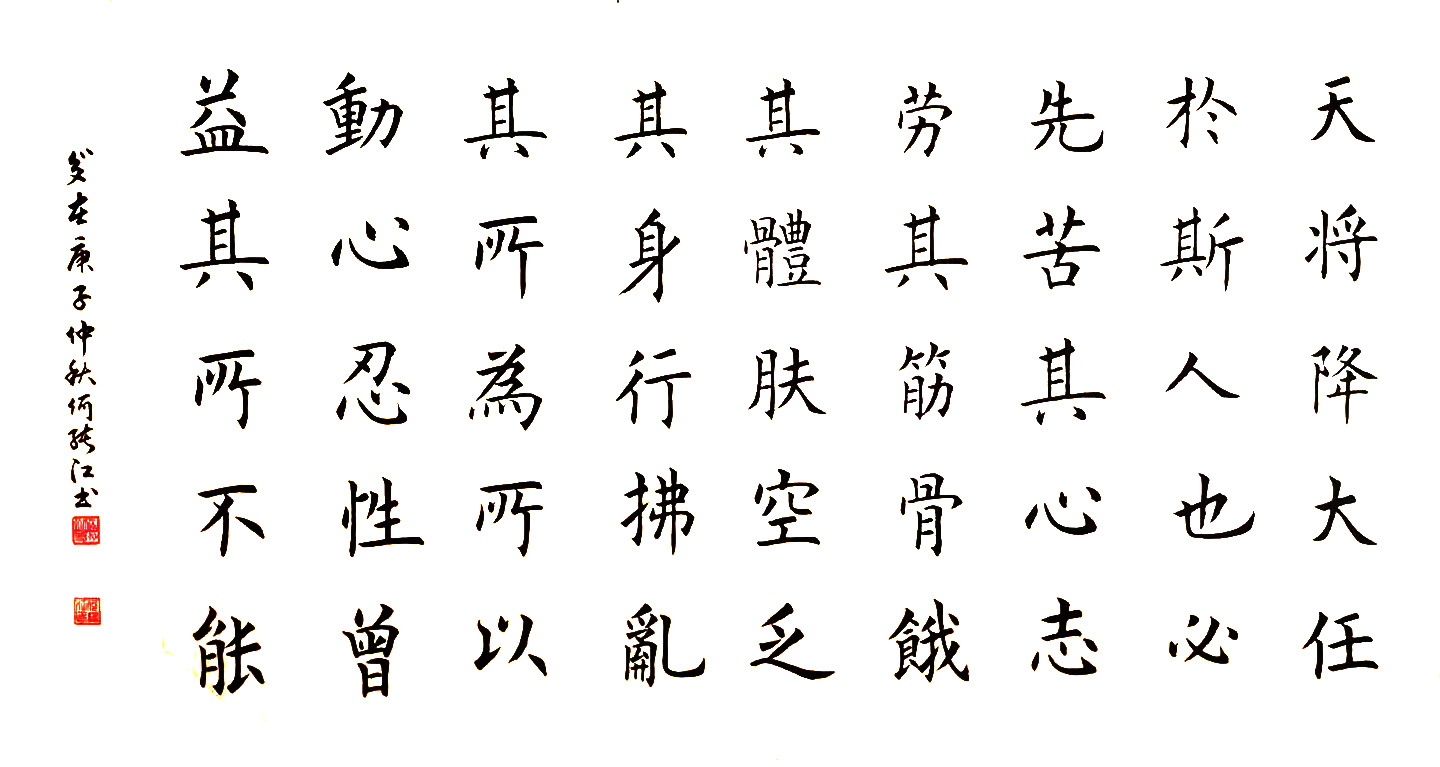 天将降大任
於斯人也必
先苦其心志
劳其筋骨餓
其體肤空乏
其身行拂亂
其所為所以
動心忍性曾
益其所不能
岁在庚子仲秋何继江书